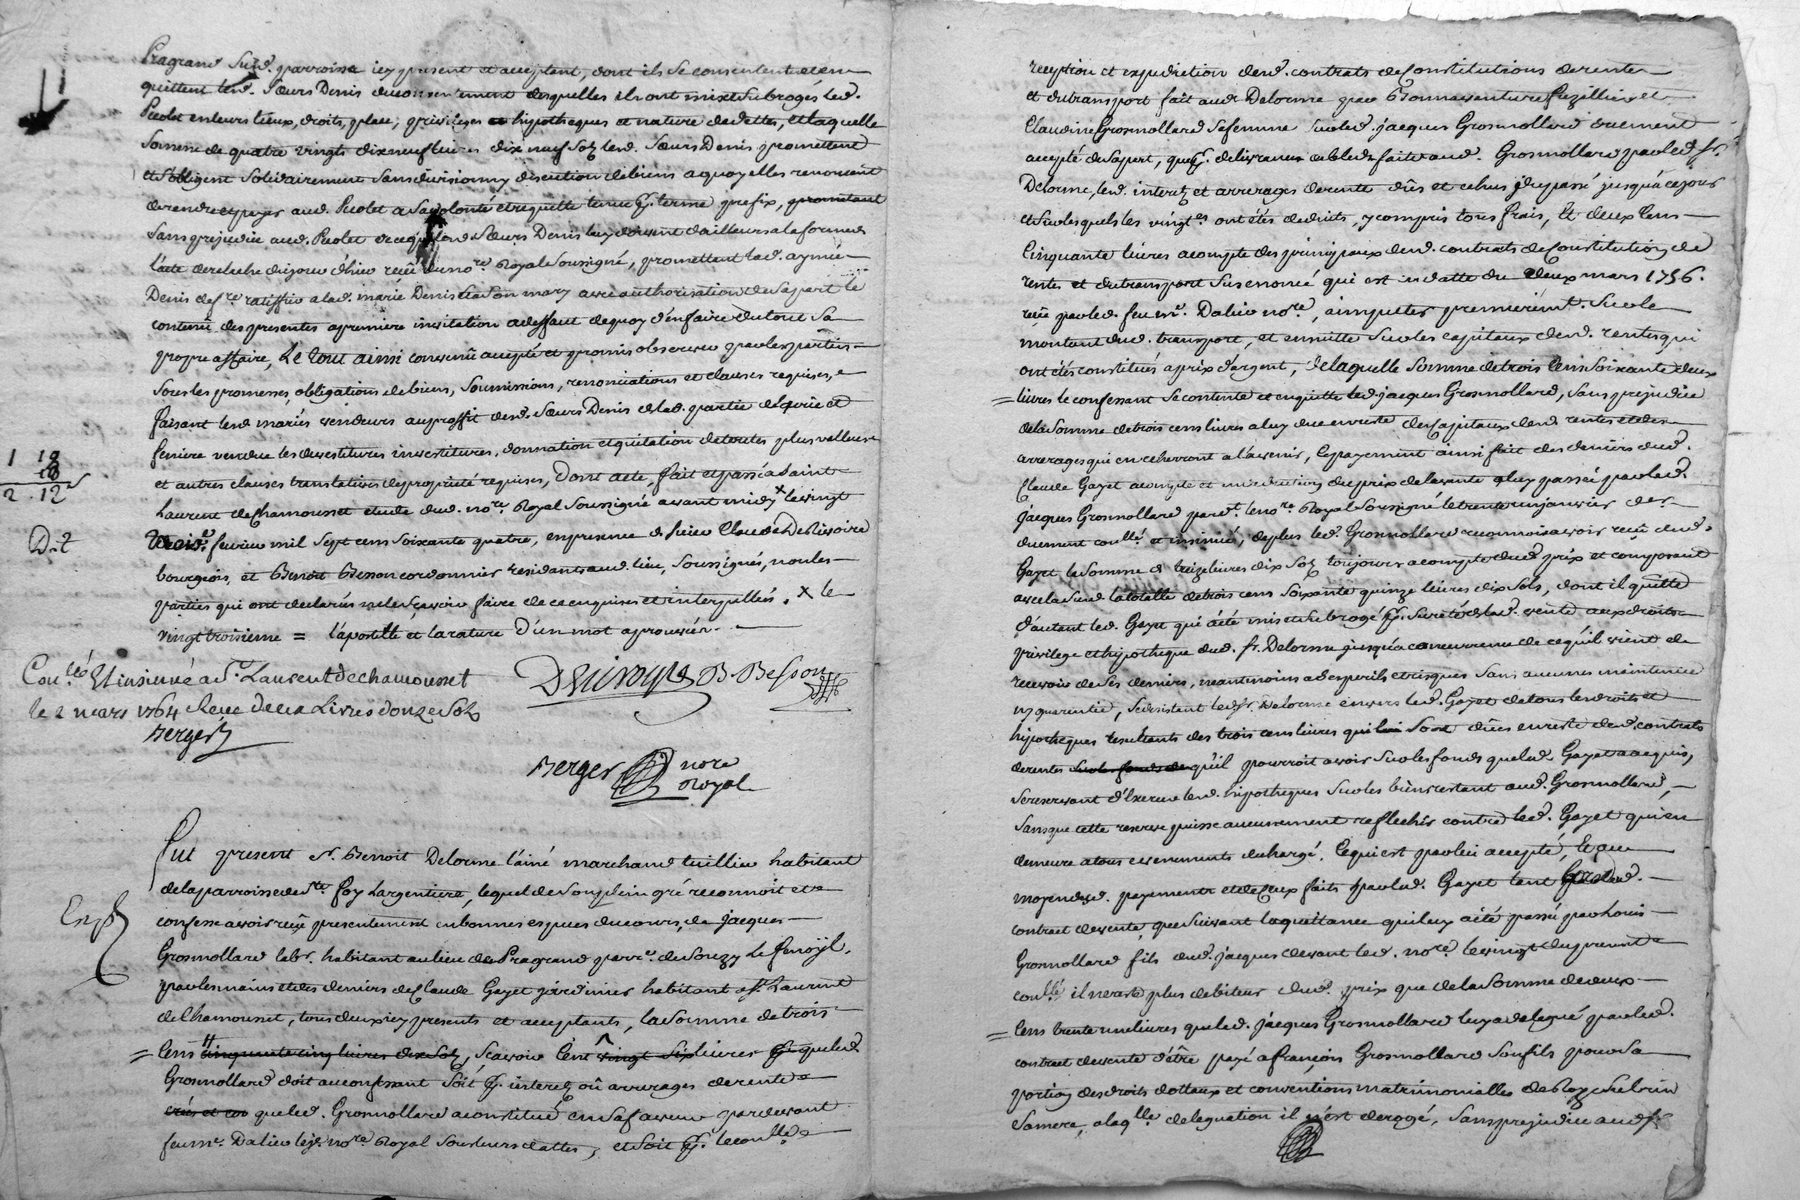 Pragrand Susd. parroisse icy present et acceptant, dont ils se contentent et en
quittent lesd. Sœurs Denis du consentement desquelles ils ont mis et subrogés led.
Picolet en leurs lieux, droits, place, privileges et hipotheques et nature de dettes, et laquelle
Somme de quatre vingts dix neuf livres dix neuf Sols lesd. Sœurs Denis promettent
et s'obligent Solidairement Sans division ny discution de biens a quoy elles renoncent
de rendre et payer aud. Picolet a Sa volonté et requette tenue pr. terme prefix, promettant
Sans prejudice aud. Picolet de ce que lesd. Sœurs Denis luy doivent d'ailleurs a la forme de
l'acte de relache du jour d'hier reçû du no.re Royal Soussigné, promettent lad. aymée
Denis de fre. ratiffier a lad. marie Denis et a Son mary avec authorisation de Sa part le
contenû des presentes a premiere invitation a deffaut de quoy d'en faire du tout Sa
propre affaire, Le tout ainsi convenû accepté et promis observer par les parties
Sous les promesses, obligations de biens, Soumissions, renonciations et clauses requises,
faisant lesd. mariés vendeurs au proffit desd. Sœurs Denis de lad. partie d'écurie et
feniere vendue les devestitures investitures, donnation et quitation de toutes plus vallues
et autres clauses translatives de proprieté requises, Dont acte, fait et passé a Saint
Laurent de Chamousset etude dud. no.re Royal Soussigné avant midy x le vingt
fevrier mil Sept cens Soixante quatre, en presence de Sieur Claude Derivoire
bourgeois, et Benoit Besson cordonnier residants aud. lieu, Soussignés, non les
parties qui ont declarés ne le Sçavoir faire de ce enquises et interpellées. x le
vingt troisieme = l'apostille et la rature d'un mot aprouvés.
1 10
2 . 12
D. 2
Con.llé Et insinué a St. Laurent de chamousset
le 2 mars 1764 Reçu deux Livres douze Sols
Berger
Derivoyre B. Besson
Berger nore
Royal
Fut present Sr. Benoit Delorme l'ainé marchand tuillier habitant
de la parroisse de Ste. foy Largentiere, lequel de Son plein gré reconnoit et
confesse avoir reçû presentement en bonnes especes du cours, de jacques
Grosmollard labr. habitant au lieu de Pragrand parr.e de Souzy Le fenoÿl,
par les mains et des deniers de Claude Gayet jardinier habitant a St. Laurent
de Chamousset, tous deux icy presents et acceptants, la Somme de trois
Exp.
= Cens cinquante cinq livres dix Sols, Scavoir Cent vingt Six livres que led.
Grosmollard doit au confessant Soit pr. interets où arrerages de rente
que led. Grosmollard a constitué en Sa faveur par devant
feu me. Dalier lejx. no.re Royal Sous leurs dattes, et Soit pr. le conllé
reception et expedition desd. contrats de Constitutions de rentes
et du transport fait aud. Delorme par Bonnaventure Fuzillier et
Claudine Grosmollard Sa femme Sur led. jacques Grosmollard duement
accepté de Sa part, que pr. delivrance d'ableds faite aud. Grosmollard par led. Sr.
Delorme, lesd. interets et arrerages de rente dûs et echus du passé jusqu'a ce jour
et Sur lesquels les vingt.es ont étés deduits, y compris tous frais, Et deux Cens
Cinquante livres a compte des principaux desd. contrats de Constitution de
rentes et du transport Susenoncé qui est en datte du deux mars 1756.
reçû par led. feu me. Dalier no.re, a imputer premierement Sur le
montant dud. transport, et ensuitte Sur les capitaux desd. rentes qui
ont étés constitués a prix d'argent, de laquelle Somme de trois Cens Soixante deux
= livres le confessant Se contente et en quitte led. jacques Grosmollard, Sans prejudice
de la Somme de trois cens livres a luy due en reste des Capitaux desd. rentes et des
arrerages qui en echerront a l'avenir, Ce payement ainsi fait des deniers dud.
Claude Gayet a compte et en deduction du prix de la vente a luy passée par led.
jacques Grosmollard pard.t le no.re Royal Soussigné le trente un janvier der.
duement con.llé et insinué, de plus led. Grosmollard reconnoit avoir reçû dud.
Gayet la Somme de treize livres dix Sols toujours a compte dud. prix et composant
avec la Susd. la totalle de trois cens Soixante quinze livres dix Sols, dont il quitte
d'autant led. Gayet qui a été mis et subrogé pr. Sureté de lad. vente aux droits
privilege et hypotheque dud. Sr. Delorme jusqu'a concurrence de ce qu'il vient de
recevoir de Ses deniers, neantmoins a Ses perils et risques Sans aucune maintenue
ny guarentie, Se desistant led. Sr. Delorme envers led. Gayet de tous les droits et
hipotheques resultants des trois cens livres qui lui Sont dûes en reste desd. contrats
de rentes Sur les fonds de qu'il pourroit avoir Sur les fonds que led. Gayet a acquis,
Se reservant d'Exercer lesd. hipotheques Sur les biens restant aud. Grosmollard,
Sans que cette reserve puisse aucunement reflechir contre led. Gayet qui en
demeure a tous evenements dechargé, Ce qui est par lui accepté, Et au
moyen desd. payements et de Ceux faits par led. Gayet tant par led.
contract de vente, que Suivant la quittance qui lui a été passée par Louis
Grosmollard fils dud. jacques devant led. no.re le vingt du present
con.llé il n'reste plus debiteur dud. prix que de la Somme de deux
= Cens trente une livres que led. jacques Grosmollard luy a delegué par led.
contract de vente d'être payé a françois Grosmollard Son fils pour Sa
portion des droits dottaux et conventions matrimonialles de
Sa mere, a laq.lle delegation il n'est derogé, Sans prejudice aud. Sr.